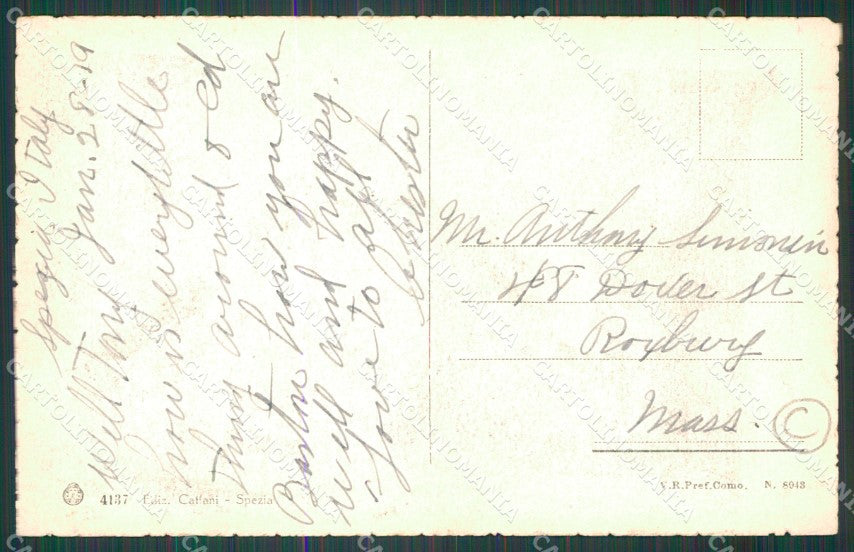 Spezia Italy
Jan. 28-19
Well Tony
how is everything
thing around old
Boston hope you are
well and happy.
Love to all
Chester
Mr. Anthony Simonein
48 Dover St
Roxbury
Mass.
C
4137 Ediz. Caffani - Spezia
V.R.Pref.Como. N. 8943
CARTOLINOMANIA